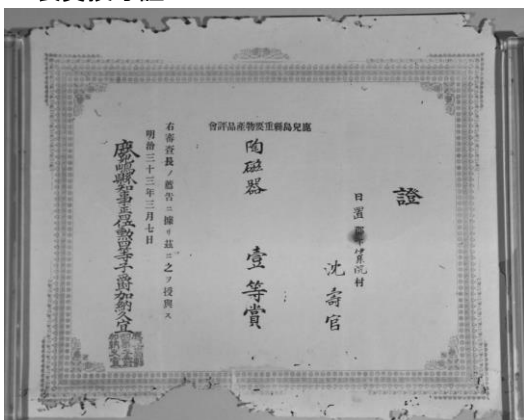 證
日置郡下伊集院村
沈壽官
鹿兒島縣重要物產品評會
陶磁器
壹等賞
右審査長ノ薦告ニ據リ茲ニ之ヲ授與ス
明治三十三年三月七日
鹿兒島縣知事正四位勲四等子爵加納久宜